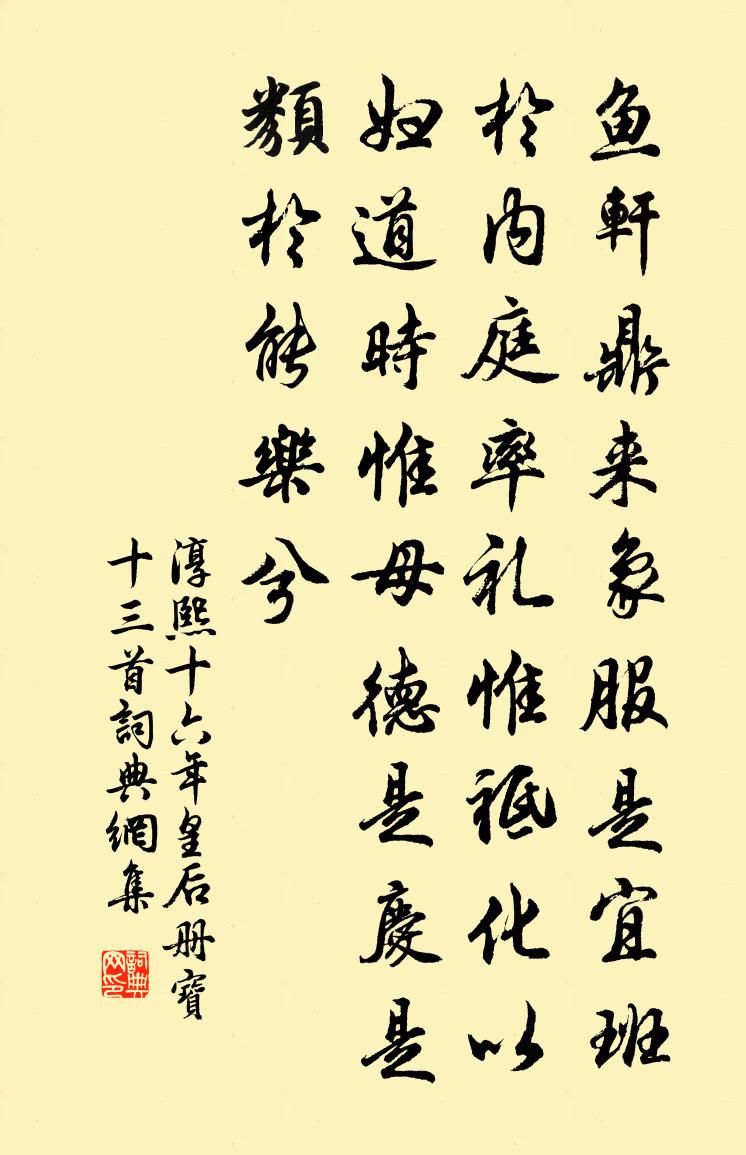 鱼軒鼎来象服是宜班
於内庭率礼惟祗化以
妇道時惟母德是慶是
類於能樂兮
淳熙十六年皇后册寶
十三首詞典網集
詞典网印